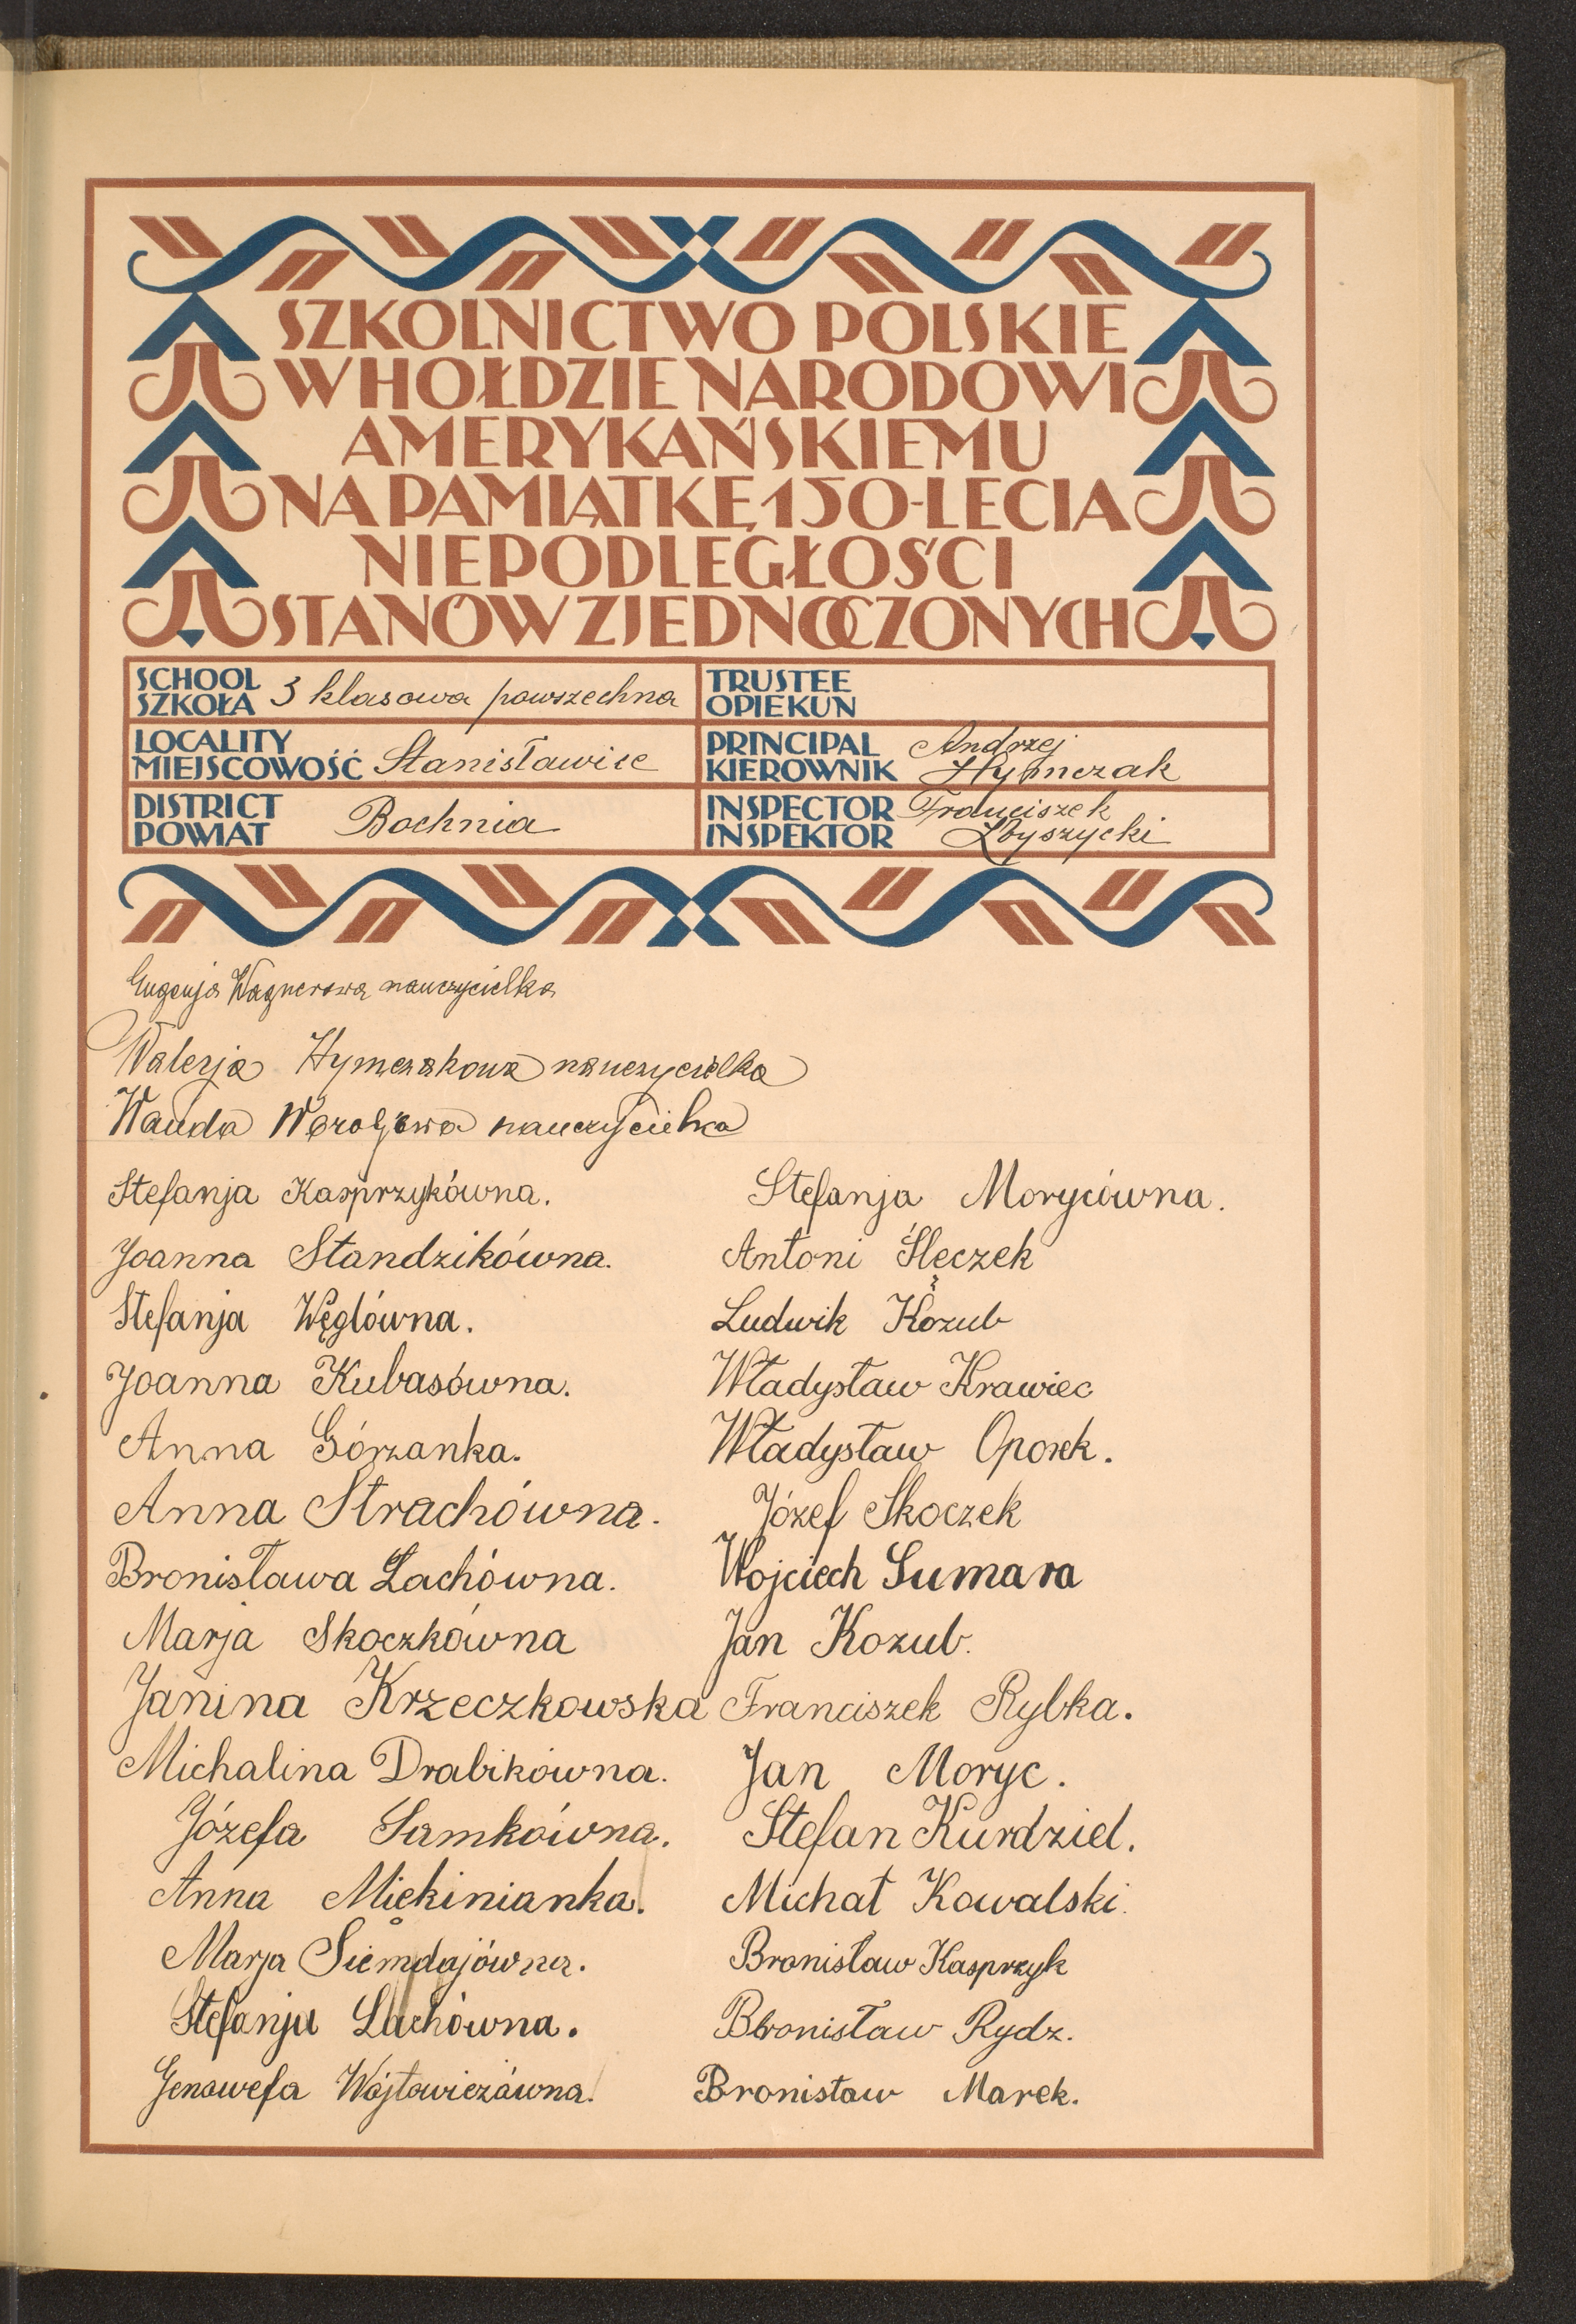 SZKOLNICTWO POLSKIE
W HOŁDZIE NARODOWI
AMERYKAŃSKIEMU
NA PAMIĄTKĘ 150-LECIA
NIEPODLEGŁOŚCI
STANÓW ZJEDNOCZONYCH
SCHOOL
SZKOŁA 3 klasowa powszechna
TRUSTEE
OPIEKUN
LOCALITY
MIEJSCOWOŚĆ Stanisławice
PRINCIPAL
KIEROWNIK Andrzej Hymczak
DISTRICT
POWIAT Bochnia
INSPECTOR
INSPEKTOR Franciszek Zbyszycki
Eugenja Wagnerowa nauczycielka
Walerja Hymczakowa nauczycielka
Wanda nauczycielka
Stefanja Kasprzykówna.
Joanna Standzikówna.
Stefanja Węglówna.
Joanna Kubasówna.
Anna Górzanka.
Anna Strachówna.
Bronisława Lachówna.
Marja Skoczkówna
Janina Krzeczkowska
Michalina Drabikówna.
Józefa Samkówna.
Anna Miękinianka.
Marja Siemdajówna.
Stefanja Lachówna.
Genowefa Wójtowiczówna.
Stefanja Morycówna.
Antoni Ślęczek
Ludwik Kozub
Władysław Krawiec
Władysław Oporek.
Józef Skoczek
Wojciech Sumara
Jan Kozub.
Franciszek Rybka.
Jan Moryc.
Stefan Kurdziel.
Michał Kowalski.
Bronisław Kasprzyk
Bronisław Rydz.
Bronisław Marek.